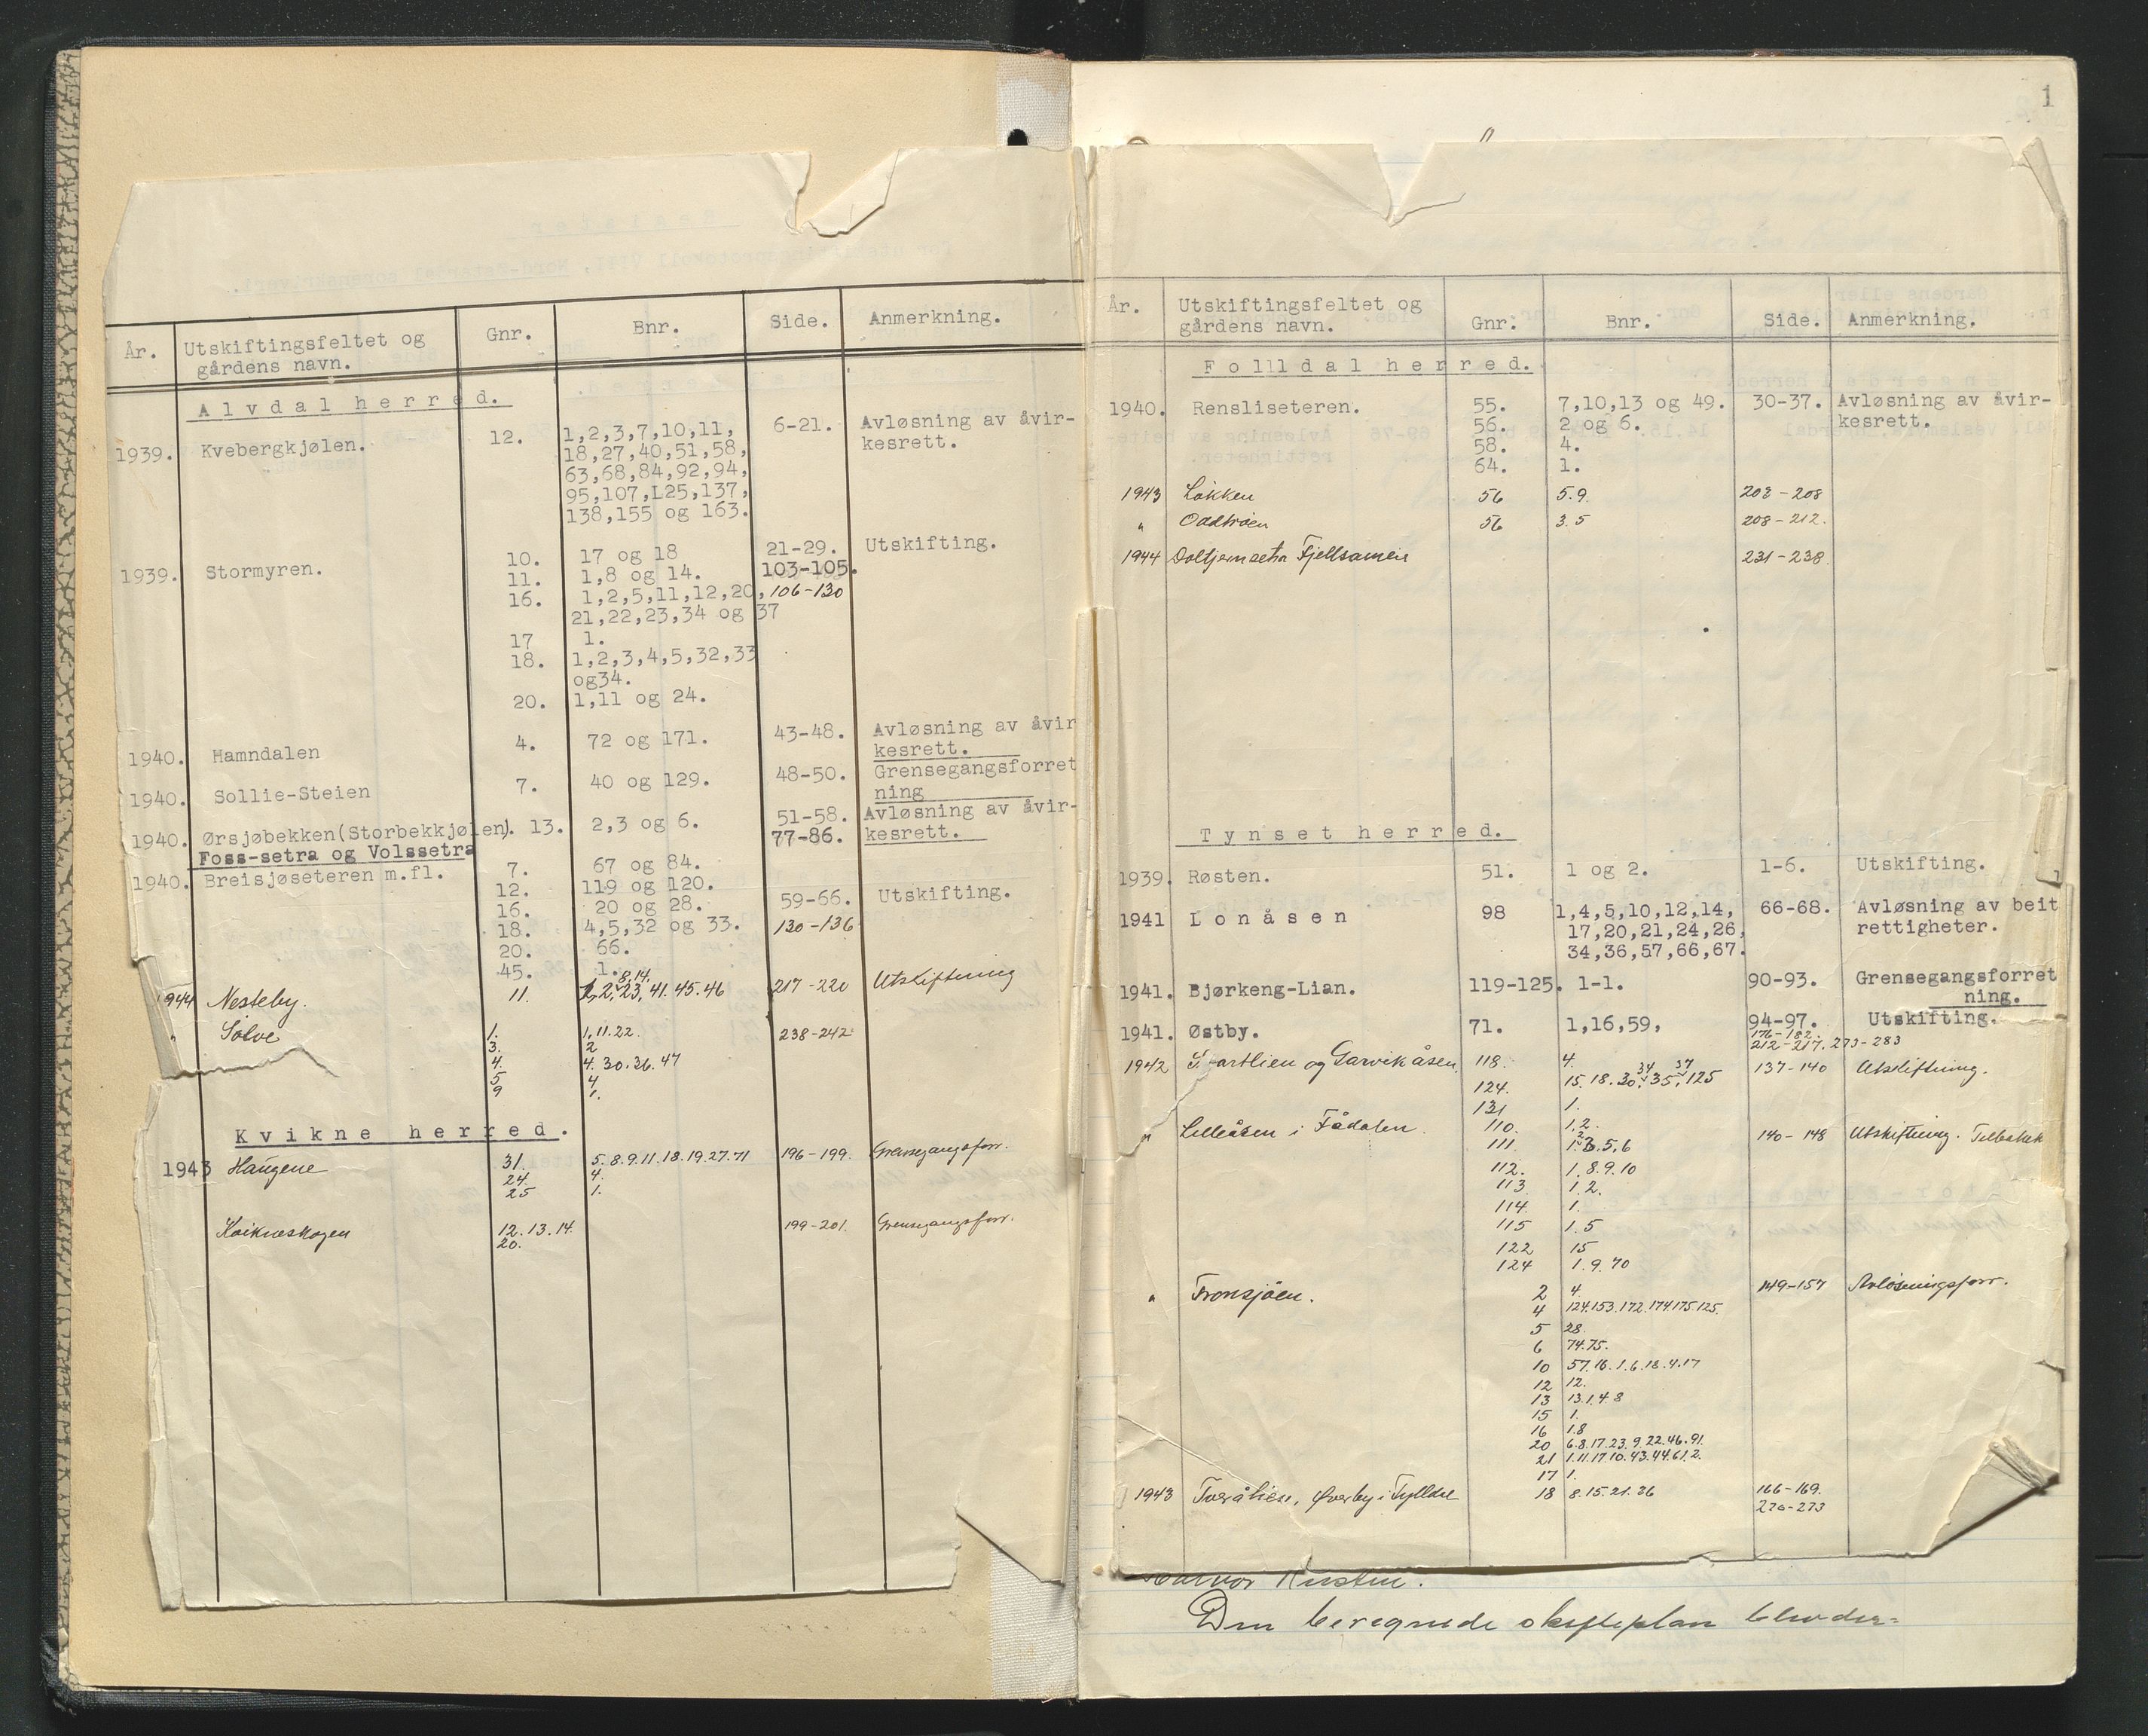 År. Utskiftingsfeltet og Gnr. Bnr. Side. Anmerkning.
gårdens navn.
Alvdal herred.
1939. Kvebergkjølen. 12. 1,2,3,7,10,11, 6-21. Avløsning av åvir-
18,27,40,51,58, kesrett.
63,68,84,92,94,
95,107,L25,137,
138,155 og 163.
1939. Stormyren. 10. 17 og 18 21-29. Utskifting.
11. 1,8 og 14. 103-105.
16. 1,2,5,11,12,20, 106-130
21,22,23,34 og 37
17 1.
18. 1,2,3,4,5,32,33
og34.
20. 1,11 og 24.
1940. Hamndalen 4. 72 og 171. 43-48. Avløsning av åvir
kesrett.
1940. Sollie-Steien 7. 40 og 129. 48-50. Grensegangsforret
ning
1940. Ørsjøbekken(Storbekkjølen). 13. 2,3 og 6. 51-58. Avløsning av åvir-
Foss-setra og Volssetra 77-86. kesrett.
1940. Breisjøseteren m.fl. 7. 67 og 84.
12. 119 og 120. 59-66. Utskifting.
16. 20 og 28.
18. 4,5,32 og 33. 130-136
20. 66.
45. 1.
8,14.
1944 Nesteby. 11. 1,2,23,41.45.46 217-220 Utskiftning
" Solve 1. 1,11.22. 238-242
3. 2
4. 4.30.36.47
5 4
9 1.
Kvikne herred.
1943 Haugene 31. 5.8.9.11.18.19.27.71 196-199. Grensegangsforr.
24. 4.
25 1.
Kvikneskogen 12.13.14. 199-201. Grensegangsforr.
20.
1
År. Utskiftingsfeltet og Gnr. Bnr. Side. Anmerkning.
gårdens navn.
Folldal herred.
1940. Rensliseteren. 55. 7,10,13 og 49. 30-37. Avløsning av åvir-
56. 2 og 6. kesrett.
58. 4.
64. 1.
1943 Løkken 56 5.9. 203-208
" Oddtrøen 56 3.5 208-212.
1944 Fjellsameie 231-238
Tynset herred.
1939. Røsten. 51. 1 og 2. 1-6. Utskifting.
1941 Lonåsen 98 1,4,5,10,12,14, 66-68. Avløsning av beit
17,20,21,24,26, rettigheter.
34,36,57,66,67.
1941. Bjørkeng-Lian. 119-125. 1-1. 90-93. Grensegangsforret
ning.
1941. Østby. 71. 1,16,59, 94-97. Utskifting.
176-182.
212-217. 273-283
1942 og Garvikåsen. 118. 4. 137-140 Utskiftning.
34 37
124. 15.18.30.35.125
131 1.
" Lilleåsen i Fådalen. 110. 1,2.
111. 1.3.5,6 140-148 Utskiftning.
112. 1,8.9.10
113 1.2.
114. 1.
115 1.5
122 15
124 1.9.70
" Fronsjøen. 2 4. 149-157 Avløsningsforr.
4 124.153.172.174.175.125.
5 28.
6 74.75.
10 57.16.1.6.18.4.17
12 12.
13 13.1.4.8
15 1.
16 1.8
20 6.8.17.23.9.22.46.91.
21 1.11.17.10.43.44.61.2.
17 1.
1943 Tverålien, Øverby i Tylldal 18 8.15.21.26 166-169.
270-273
Den beregnede skifteplan blev der=